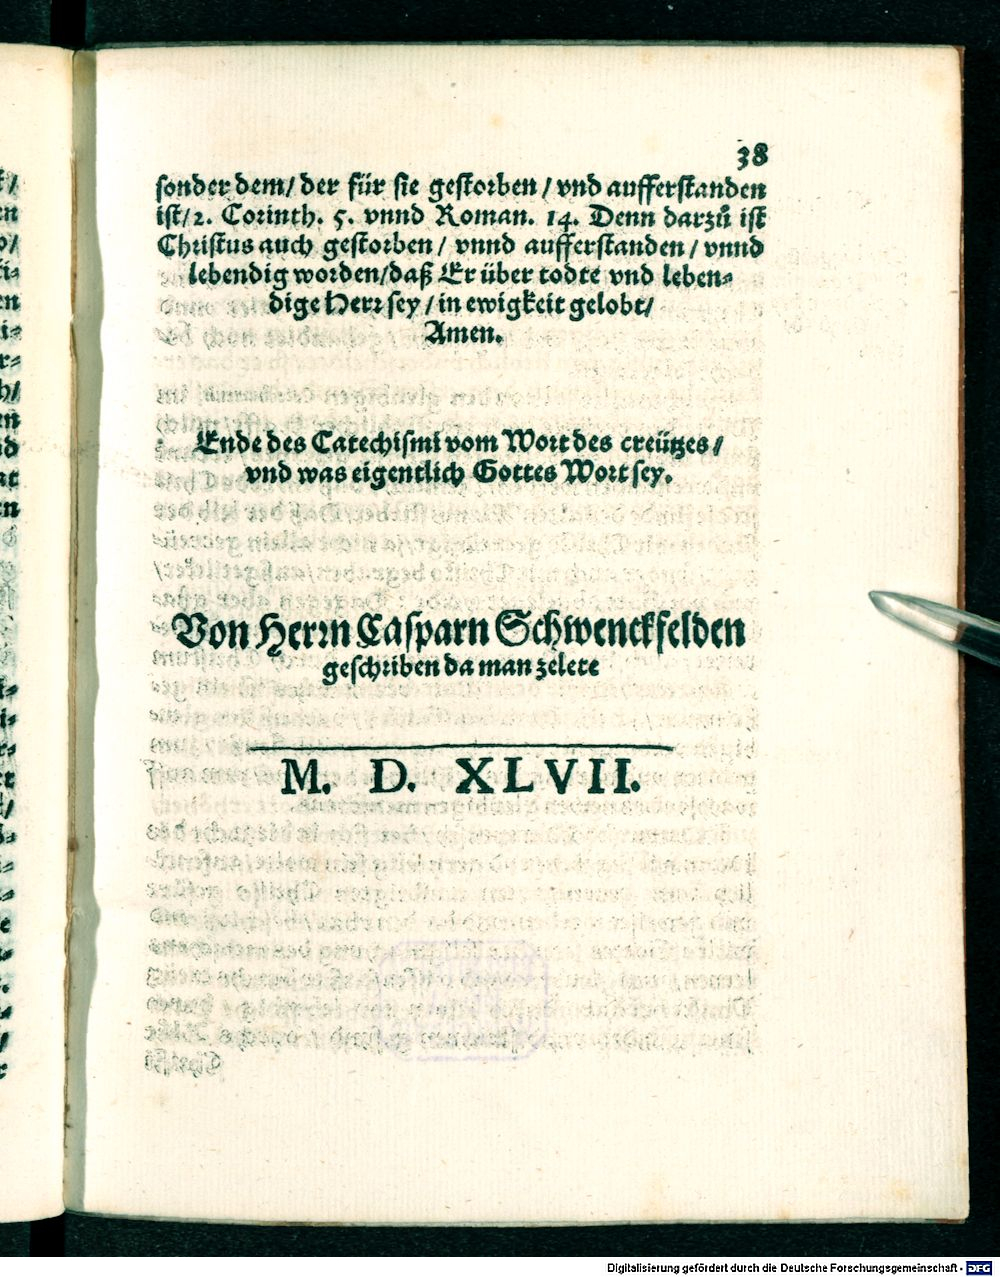 38
sonder dem/ der für sie gestorben / vnd aufferstanden
ist/ 2. Corinth. 5. vnnd Roman. 14. Denn darzů ist
Christus auch gestorben / vnnd aufferstanden / vnnd
lebendig worden/daß Er über todte vnd leben-
dige Herr sey / in ewigkeit gelobt/
Amen.
Ende des Catechismi vom Wort des creützes /
vnd was eigentlich Gottes Wort sey.
Von Herrn Casparn Schwenckfelden
geschriben da man zelete
M. D. XLVII.
Digitalisierung gefördert durch die Deutsche Forschungsgemeinschaft - DFG